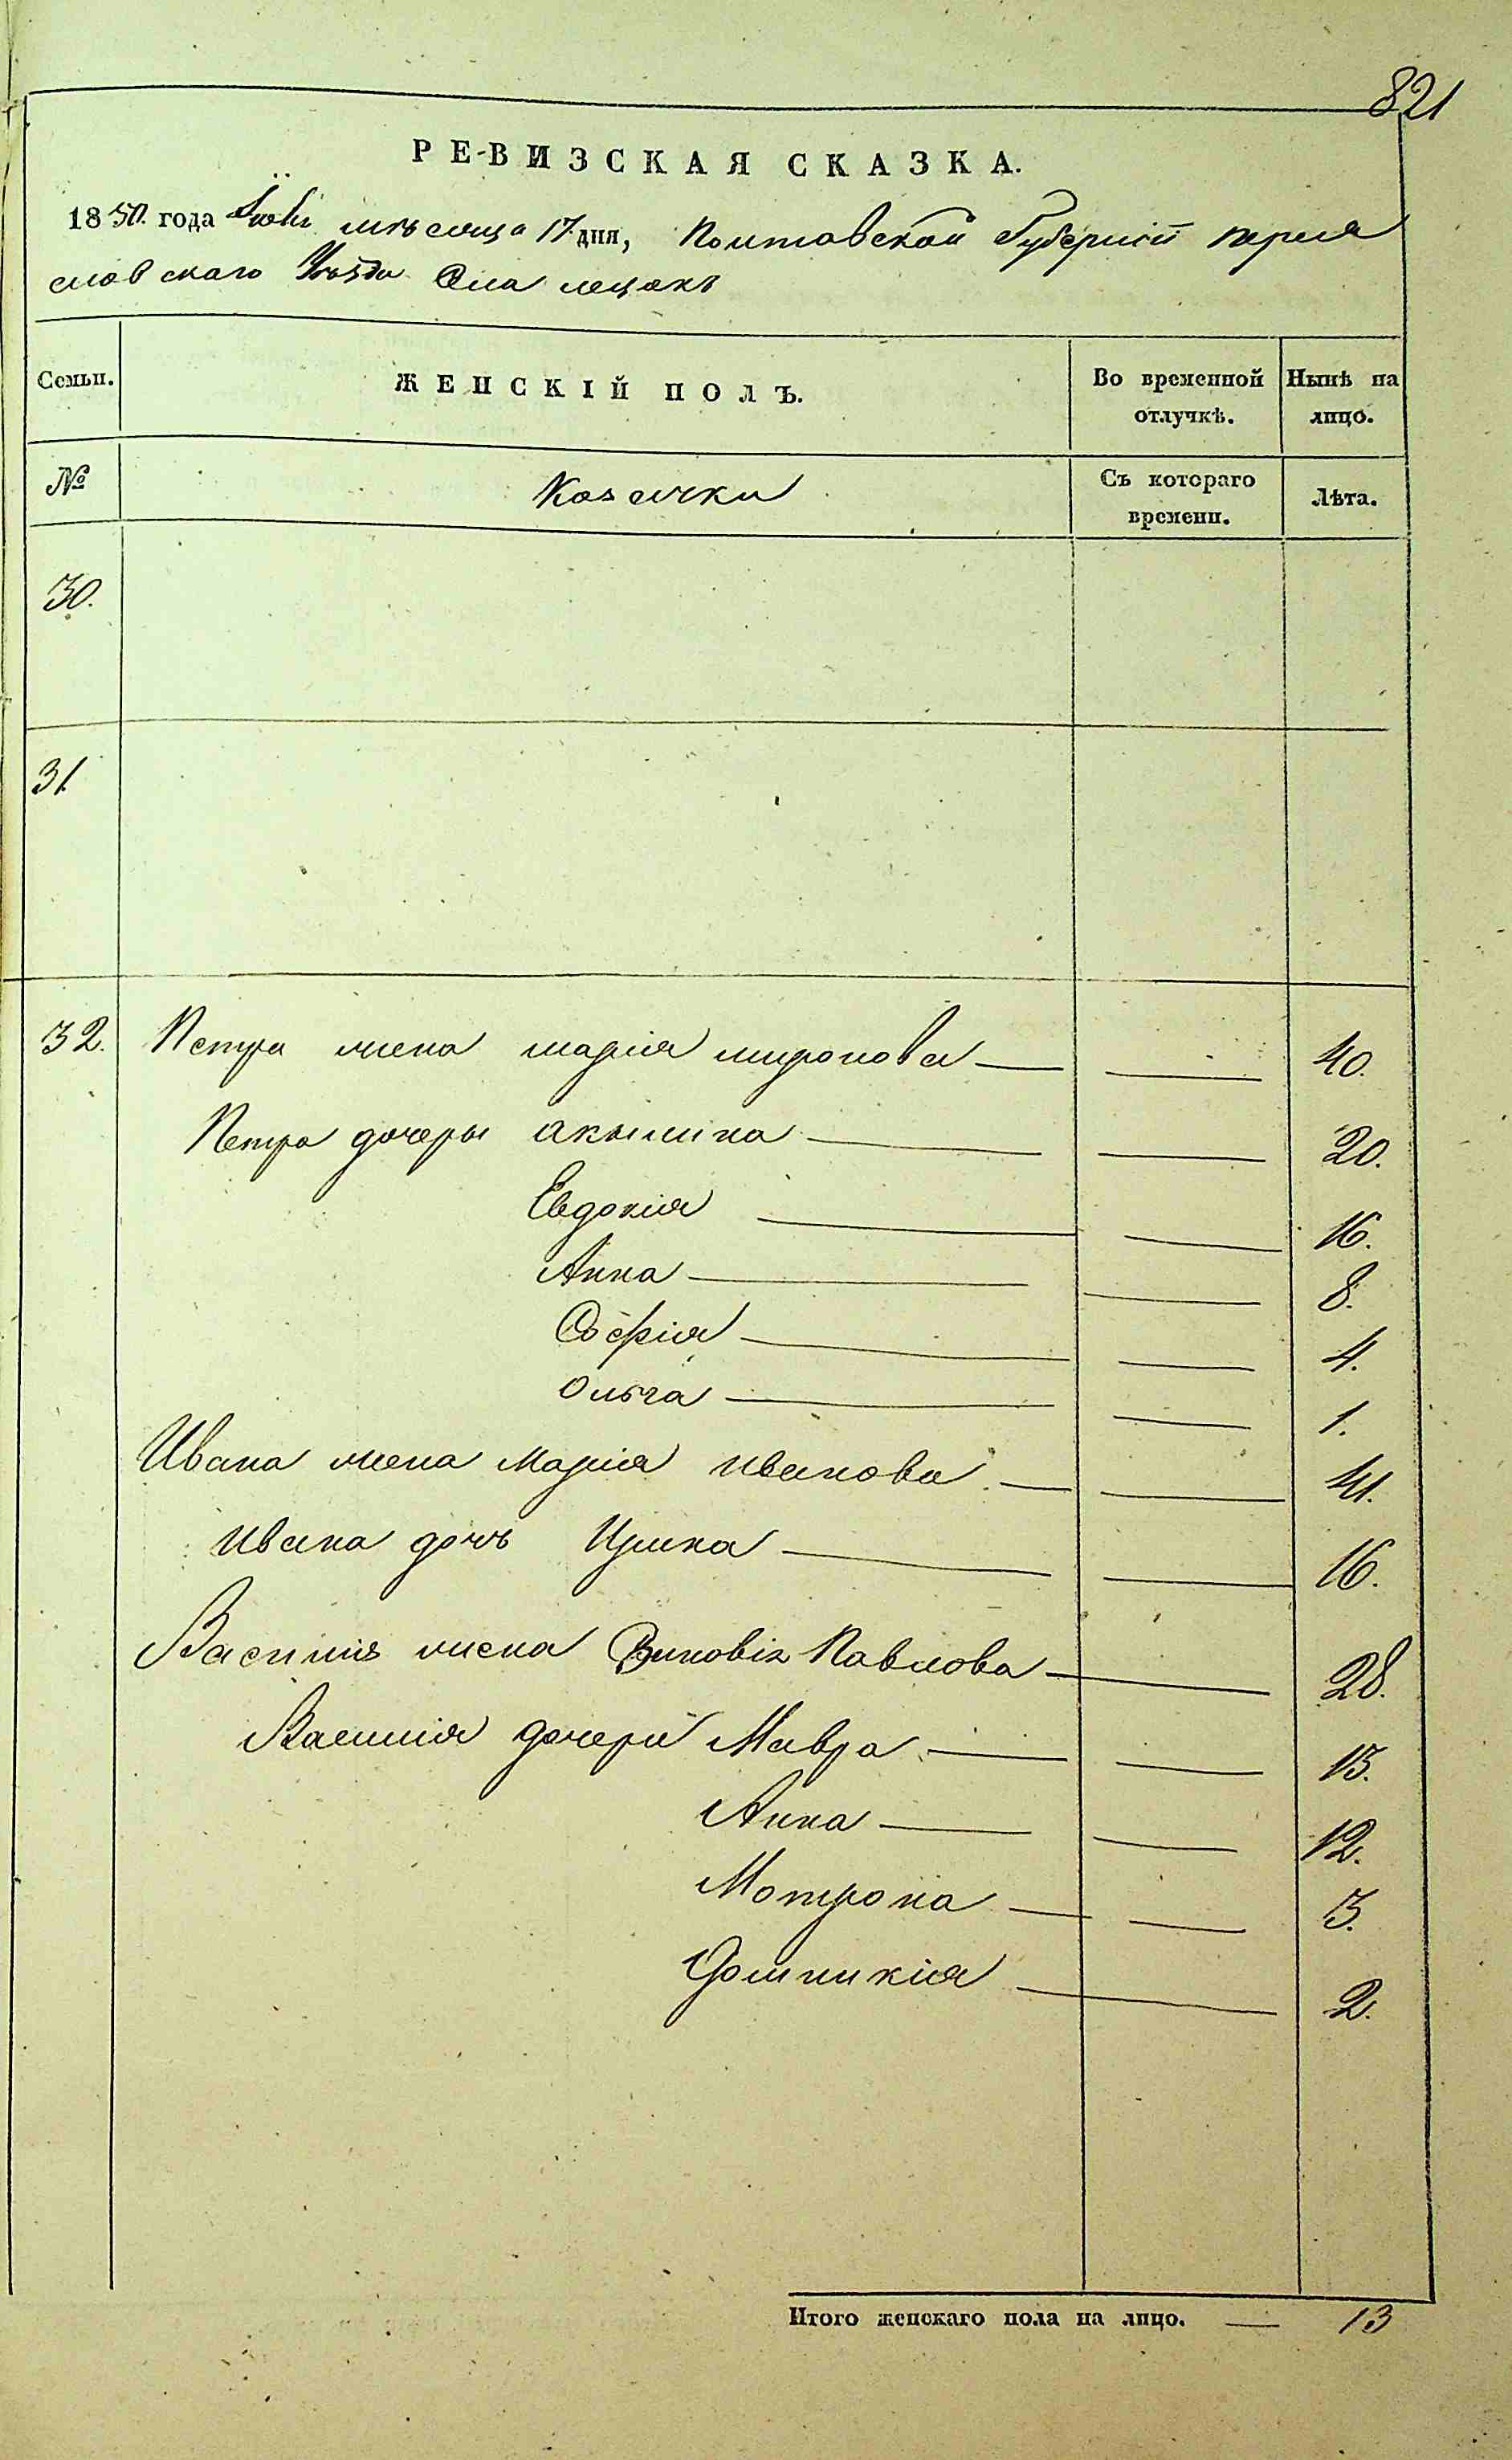 821
РЕВИЗСКАЯ СКАЗКА.
1850. года мѣсяца 17 дня, Полтавской Губерніи переяс
лавскаго Уѣзда Села лецокъ
Семьи.
ЖЕНСКІЙ ПОЛЪ.
Во временной отлучкѣ.
Нынѣ на лицо.
№
Козачки
Съ котораго времени.
Лѣта.
30.
31.
32. Петра жена марія миронова — — 40.
Петра дочеры акылина — — 20.
Евдокія — — 16.
Анна — — 8.
Софія — — 4.
Ольга — — 1.
Ивана жена Марія иванова — — 41.
ивана дочь Ирина — — 16.
Василія жена Зиновія Павлова — 28.
Василія дочери Мавра — — 13.
Анна — — 12.
Мотрона — — 3.
Домникія — 2.
Итого женскаго пола на лицо. — 13